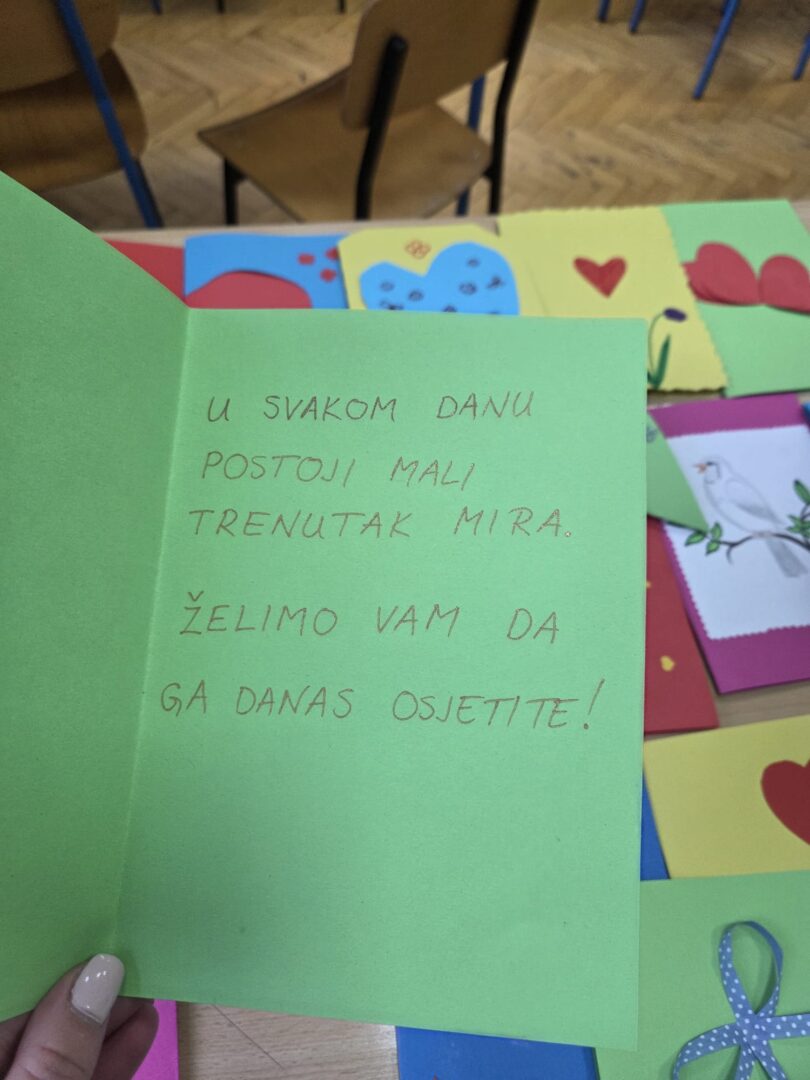 U SVAKOM DANU
POSTOJI MALI
TRENUTAK MIRA.
ŽELIMO VAM DA
GA DANAS OSJETITE!